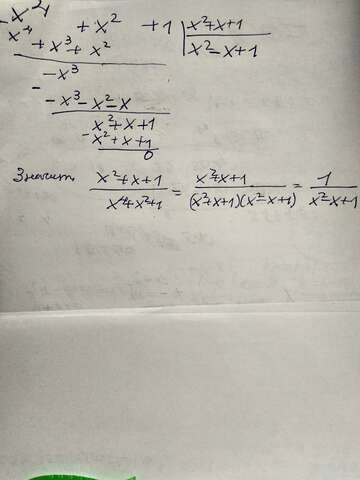 - x⁴ + x² + 1 | x²+x+1
x⁴ + x³ + x² | x² - x + 1
- x³
- - x³ - x² - x
x² + x + 1
- x² + x + 1
0
Значит x²+x+1 / x⁴+x²+1 = x²+x+1 / (x²+x+1)(x²-x+1) = 1 / x²-x+1